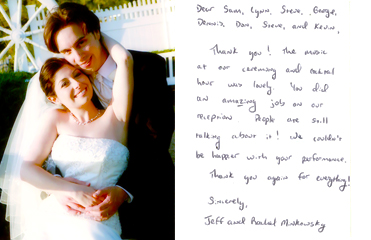 Dear Sam, Lynn, Steve, George,
Dennis, Don, Steve, and Kevin,
Thank you! The music
at our ceremony and cocktail
hour was lovely. You did
an amazing job on our
reception People are still
talking about it! We couldn't
be happier with your performance.
Thank you again for everything!
Sincerely,
Jeff and Rachel Minkowsky